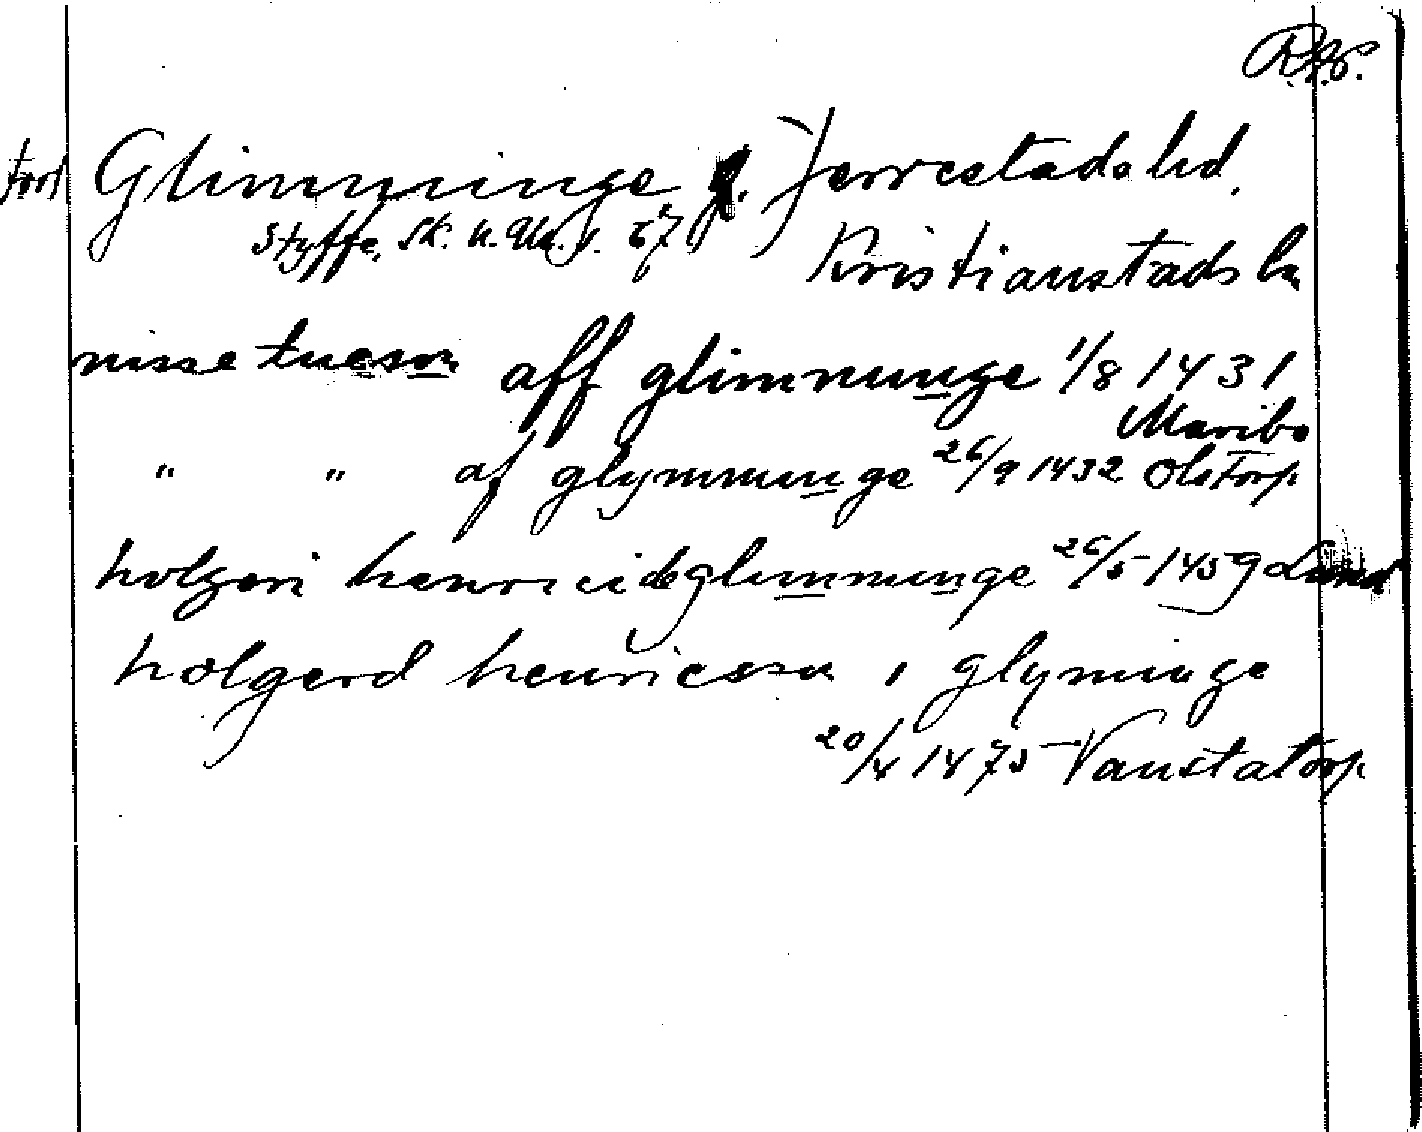 Fort Glimminge Jerrestads hd.
Styffe, Sk. u. Un. s. 67
Kristianstads ln
nisse tueson aff glimmunge 1/8 1431
Maribo
" " af glymmunge 26/9 1432 Olstorp
holgeri henrici de glimmunge 26/5 1459 Lund
holgerd henricsson i glyminge
20/4 1475 Vanstatorp